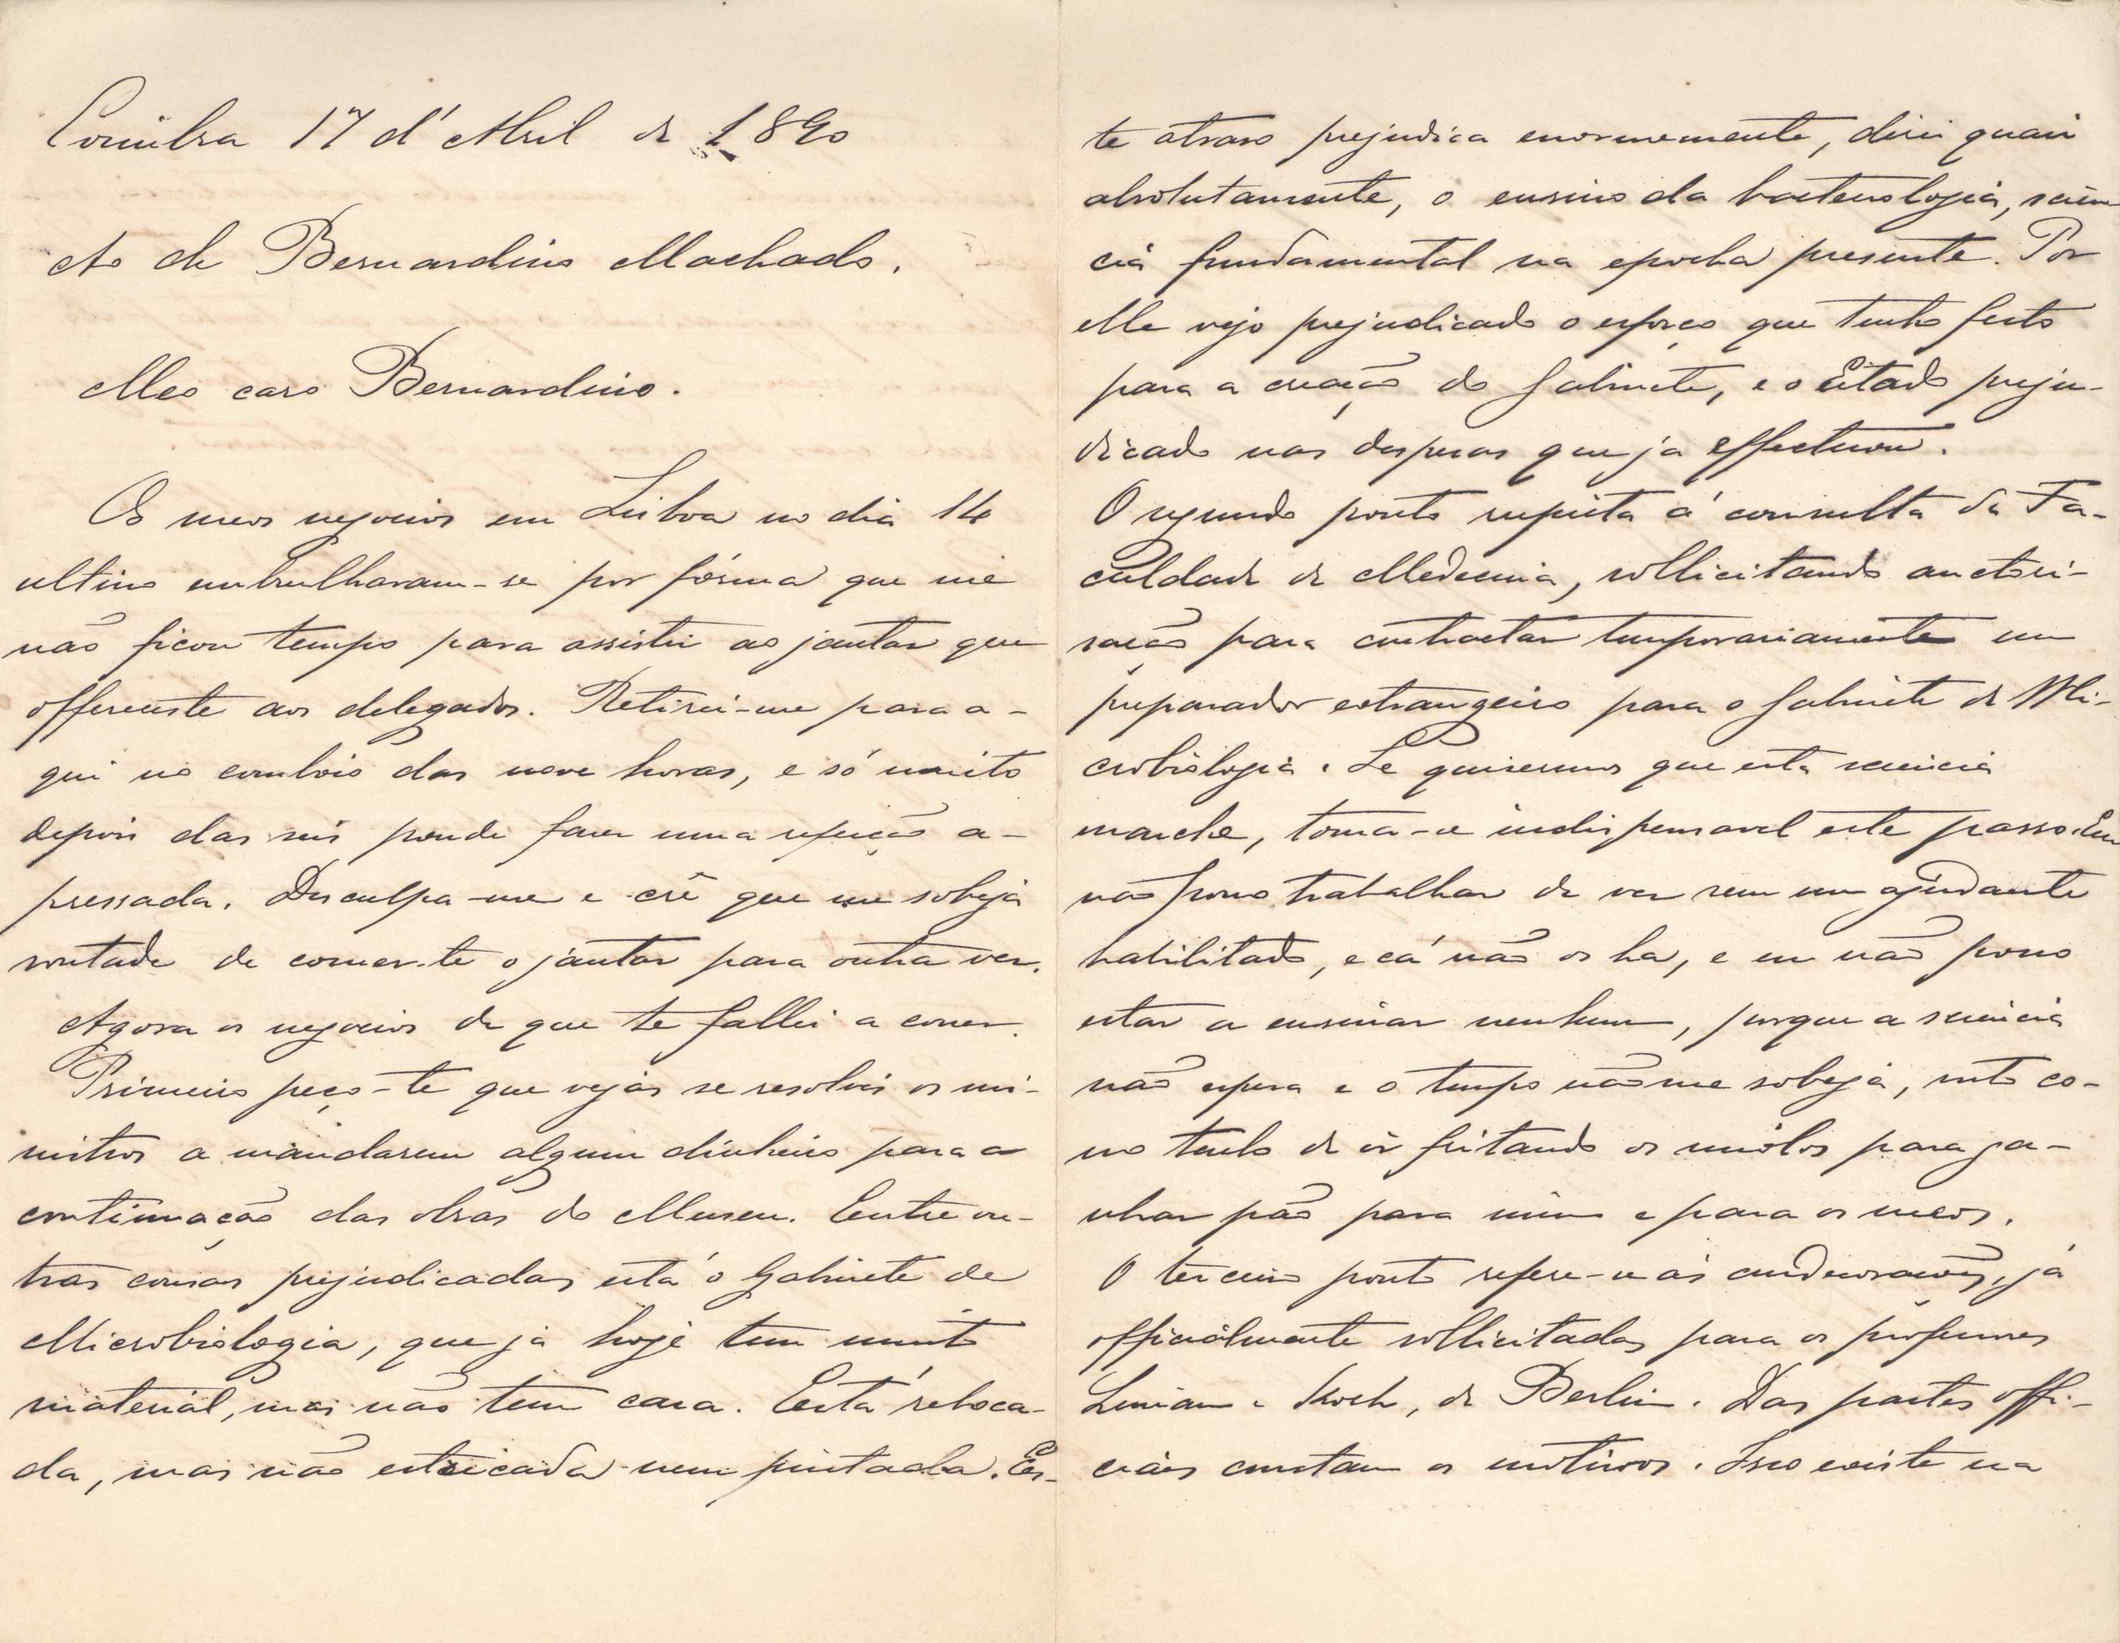 Coimbra 17 d'Abril de 1890
Ao dr Bernardino Machado.
Meo caro Bernardino.
Os meos negocios em Lisboa no dia 14
ultimo embrulharam-se por fórma que me
não ficou tempo para assistir ao jantar que
offereceste aos delegados. Retirei-me para a-
qui no comboio das nove horas, e só muito
depois das seis poude fazer uma refeição a-
pressada. Desculpa-me e crê que me sobeja
vontade de comer-te o jantar para outra vez.
Agora os negocios de que te fallei a correr.
Primeiro peço-te que vejas se resolves os mi-
nistros a mandarem algum dinheiro para a
continuação das obras do Museu. Entre ou-
tras cousas prejudicadas está o Gabinete de
Microbiologia, que já hoje tem muito
material, mas não tem casa. Está reboca-
da, mas não estucada nem pintada. Es-
te atraso prejudica enormemente, direi quasi
absolutamente, o ensino da bacteriologia, scien-
cia fundamental na epocha presente. Por
elle vejo prejudicado o esforço que tenho feito
para a creação do Gabinete, e o Estado preju-
dicado nas despesas que ja effectuou.
O segundo ponto respeita á consulta da Fa-
culdade de Medecina, sollicitando auctori-
sação para contractar temporariamente um
preparador estrangeiro para o Gabinete de Mi-
crobiologia. Se quisermos que esta sciencia
marche, torna-se indispensavel este passo. Eu
não posso trabalhar de vez sem um ajudante
habilitado, e cá não os ha, e eu não posso
estar a ensinar nenhum, porque a sciencia
não espera e o tempo não me sobeja, visto co-
mo tenho de ir fritando os miólos para ga-
nhar pão para mim e para os meos.
O terceiro ponto refere-se ás condecorações, já
officialmente sollicitadas para os professores
e Koch, de Berlin. Das partes offi-
ciaes constam os motivos. Isso existe na